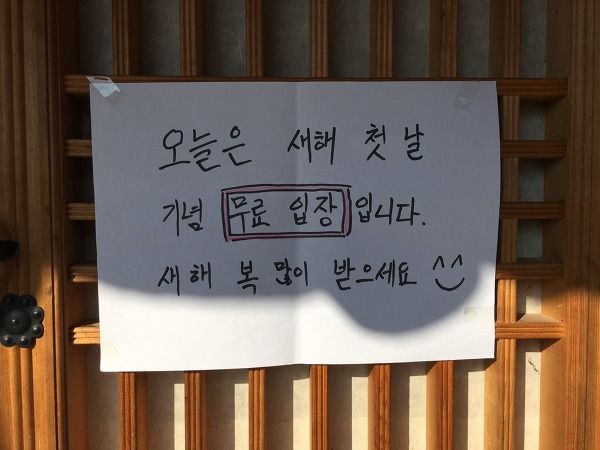 오늘은 새해 첫 날
기념 무료 입장 입니다.
새해 복 많이 받으세요 ^^